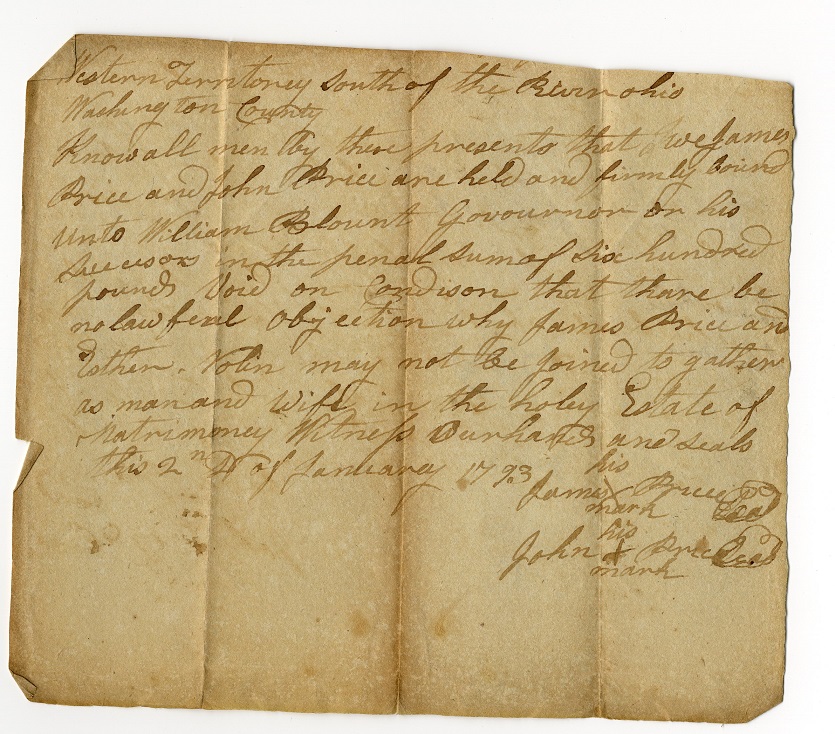 Western Territorey South of the River ohio
Wachington County
Know all men by these presents that we James
Price and John Price are held and firmly bound
unto William Blount Govournor or his
Successors in the penal sum of Six hundred
pounds Void on Condison that thare be
no lawfeul Objection why James Price and
Esther Nolin may not be Joined to gather
as man and wife in the holey Estate of
Matrimoney Witness Our hands and seals
this 2nd D of January 1793
his
James X Price Seal
mark
his
John X Price Seal
mark